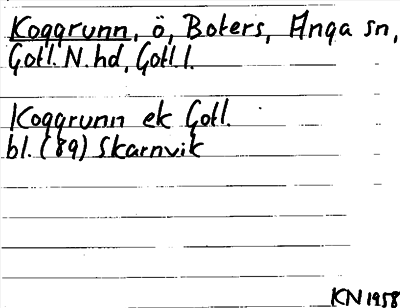 Koggrunn, ö, Boters, Anga sn,
Gotl. N. hd, Gotl. l.
Koggrunn ek Gotl.
bl. (89) Skarnvik
KN 1958